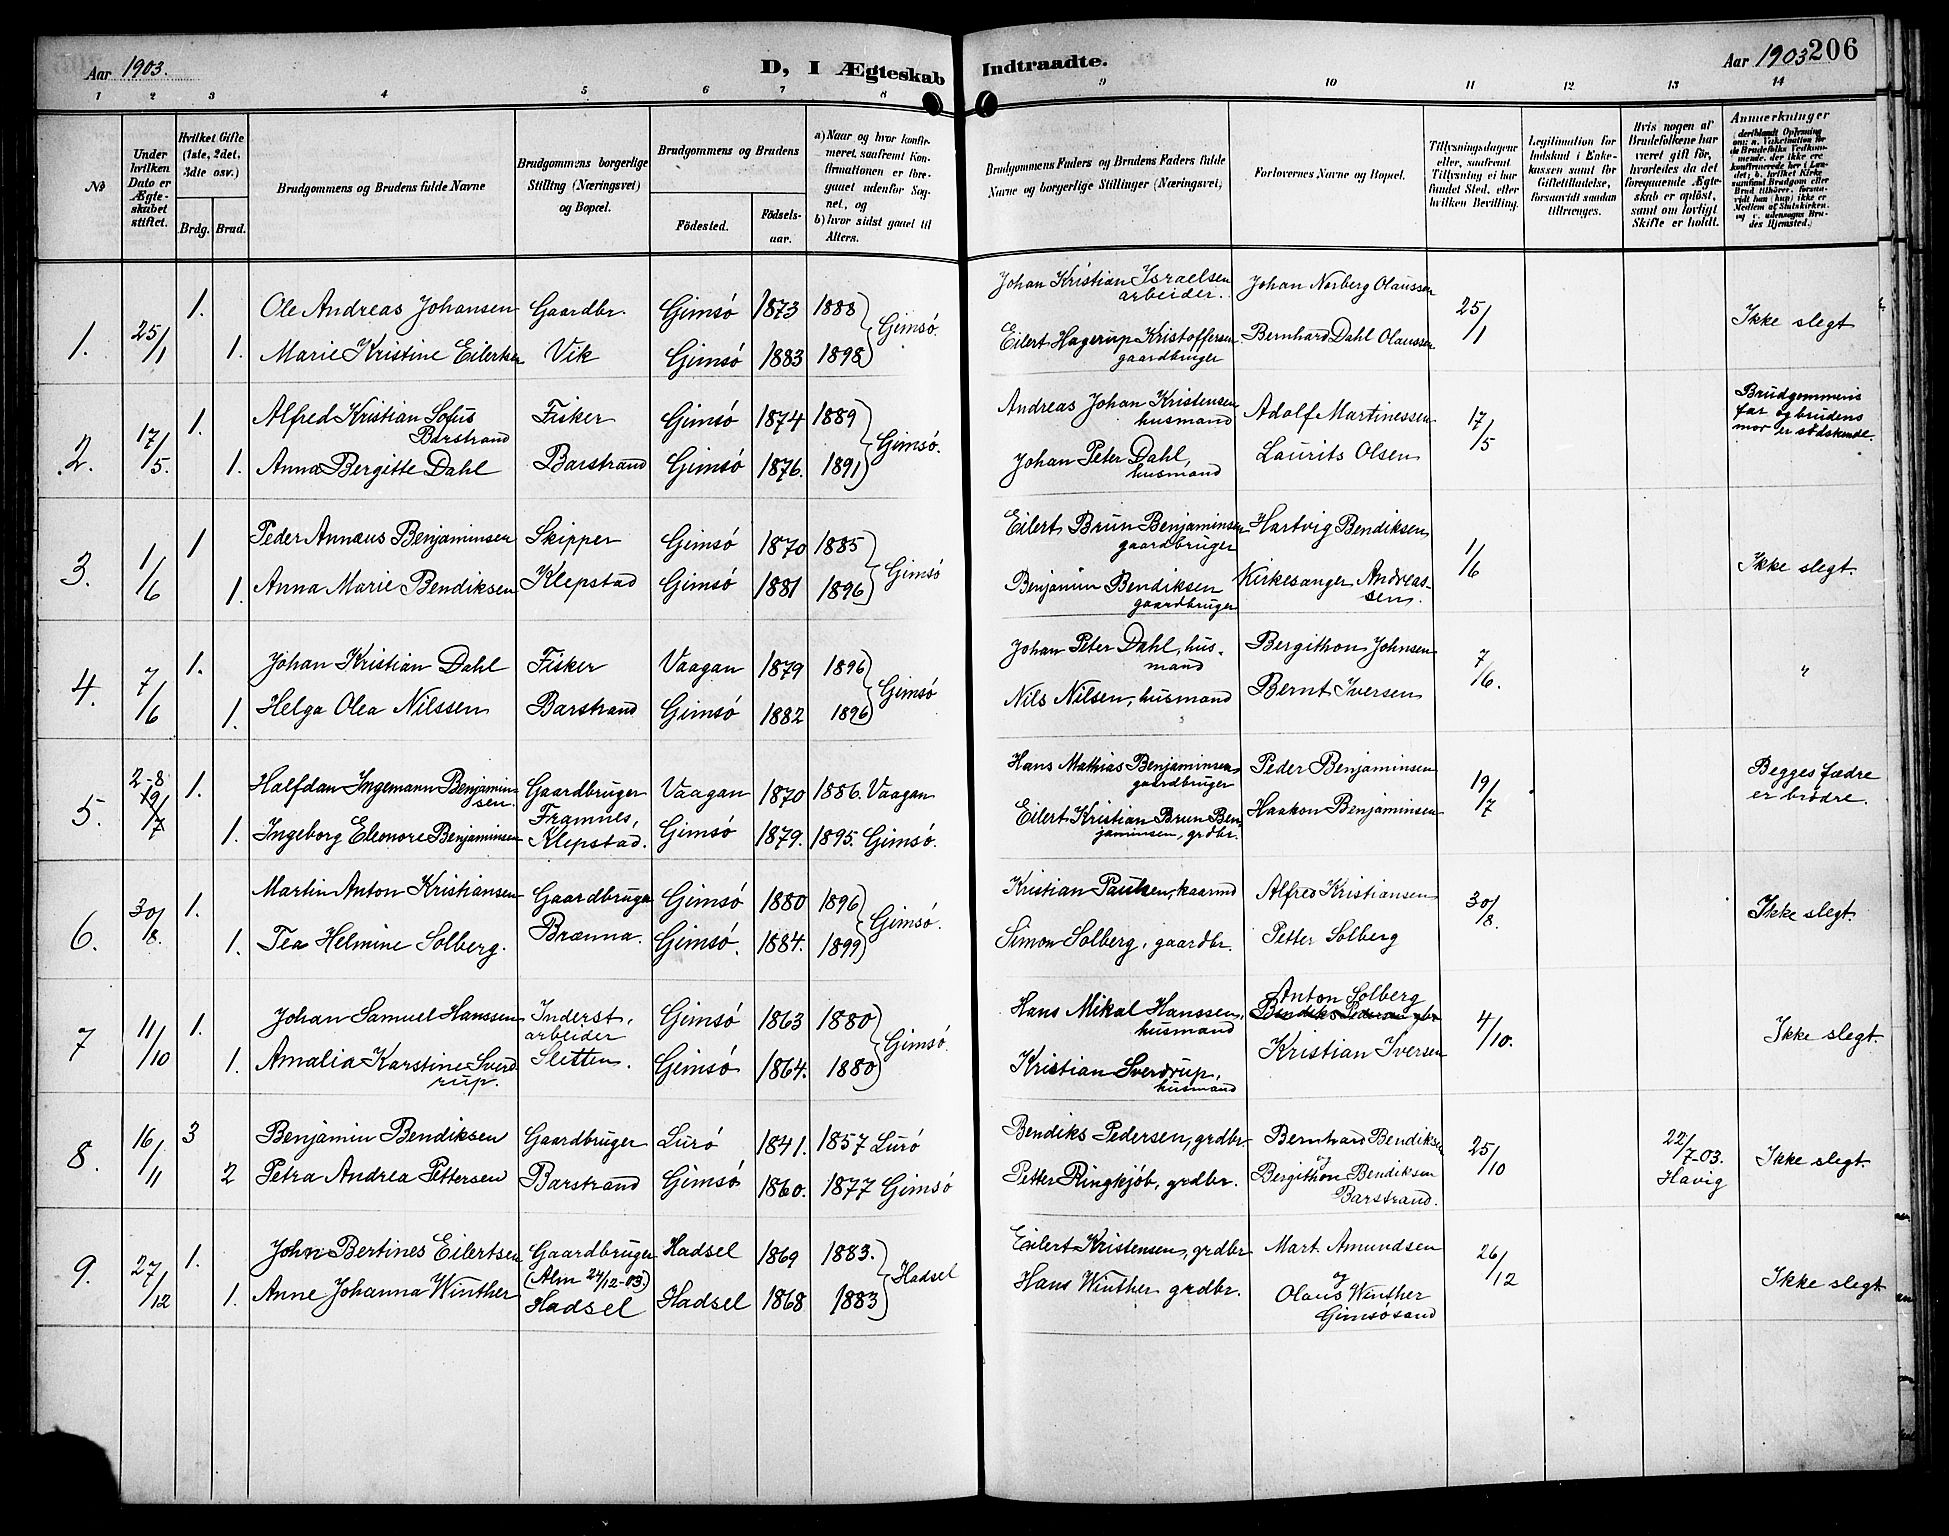 Aar 1903.
D, I Ægteskab Indtraadte.
Aar 1903 206
1 2 3 4 5 6 7 8 9 10 11 12 13 14
No
Under hvilken Dato er Ægteskabet stiftet.
Hvilket Gifte (1ste, 2det, 3die osv.)
Brdg. Brud.
Brudgommens og Brudens fulde Navne
Brudgommens borgerlige Stilling (Næringsvei) og Bopæl.
Brudgommens og Brudens
Fødested. Fødselsaar.
a) Naar og hvor konfirmeret, saafremt Konfirmationen er foregaaet udenfor Sognet, og
b) hvor sidst gaaet til Alters.
Brudgommens Faders og Brudens Faders fulde Navne og borgerlige Stillinger (Næringsvei)
Forlovernes Navne og Bopæl.
Tillysningsdagene eller, saafremt Tillysning ei har fundet Sted, efter hvilken Bevilling.
Legitimation for Indskud i Enkekassen samt for Giftetilladelse, forsaavidt saadan tiltrænges.
Hvis nogen af Brudefolkene har været gift før, hvorledes da det foregaaende Ægteskab er opløst, samt om lovligt Skifte er holdt.
Anmerkninger
1. 25/1 1. Ole Andreas Johansen Gaardbr. Gimsö 1873 1888 Gimsö. Johan Kristian Israelsen arbeider. Johan Norberg Olaussen 25/1 Ikke slegt
1. Marie Kristine Eilertsen Vik Gimsö 1883 1898 Eilert Hagerup Kristoffersen gaardbruger Bernhard Dahl Olaussen
2. 17/5. 1. Alfred Kristian Sofus Barstrand Fisker Gimsö 1874 1889 Gimsö. Andreas Johan Kristensen husmand Adolf Martinessen 17/5 Brudgommens far og brudens mor er södskende.
1. Anna Bergitte Dahl Barstrand Gimsö 1876. 1891 Johan Peter Dahl, husmand Laurits Olsen
3. 1/6 1 Peder Annæus Benjaminsen Skipper Gimsö 1870 1885 Gimsö Eilert Brun Benjaminsen gaardbruger Hartvig Bendiksen 1/6 Ikke slegt.
1. Anna Marie Bendiksen Klepstad Gimsö 1881 1896 Benjamin Bendiksen gaardbruger Kirkesanger Andreassen.
4. 7/6 1. Johan Kristian Dahl Fisker Vaagan 1879 1896 Gimsö Johan Peter Dahl, husmand Bergithon Johnsen 7/6. "
1. Helga Olea Nilssen Barstrand Gimsö 1882 1896 Nils Nilsen, husmand Bernt Iversen
5. 2-8 19/7 1. Halfdan Ingemann Benjaminsen. Gaardbruger Vaagan 1870 1886. Vaagan Hans Mathias Benjaminsen gaardbruger Peder Benjaminsen 19/7 Begges fædre er brödre.
1. Ingeborg Eleonore Benjaminsen Framnes, Klepstad. Gimsö 1879. 1895. Gimsö. Eilert Kristian Brun Benjaminsen, grdbr. Haakon Benjaminsen
6. 30/8. 1. Martin Anton Kristiansen Gaardbruger Gimsö 1880 1896 Gimsö. Kristian Paulsen, kaarmd Alfred Kristiansen 30/8. Ikke slegt.
1. Tea Helmine Solberg. Brænna. Gimsö. 1884. 1899 Simon Solberg, gaardbr. Petter Solberg
7 11/10 1. Johan Samuel Hanssen Inderst, arbeider Gimsö 1863 1880 Gimsö. Hans Mikal Hanssen, husmand Anton Solberg 4/10. Ikke slegt.
1. Amalia Karstine Sverdrup. Sletten. Gimsö 1864. 1880 Kristian Sverdrup, husmand Kristian Iversen
8. 16/11 3 Benjamin Bendiksen Gaardbruger Lurö 1841. 1857 Lurö Bendiks Pedersen, grdbr. Bernhard Bendiksen og 25/10 22/7-03. Havig Ikke slegt.
2 Petra Andrea Pettersen Barstrand Gimsö 1860. 1877 Gimsö Petter Ringkjöb, grdbr. Bergithon Bendiksen Barstrand.
9. 27/12 1. John Bertines Eilertsen Gaardbruger Hadsel 1869 1883. Hadsel Eilert Kristensen, grdbr Mart. Amundsen og 26/12 Ikke slegt
1. Anne Johanna Winther (Alm 24/12-03) Hadsel Hadsel 1868 1883 Hans Winther grdbr. Olaus Winther Gimsösand